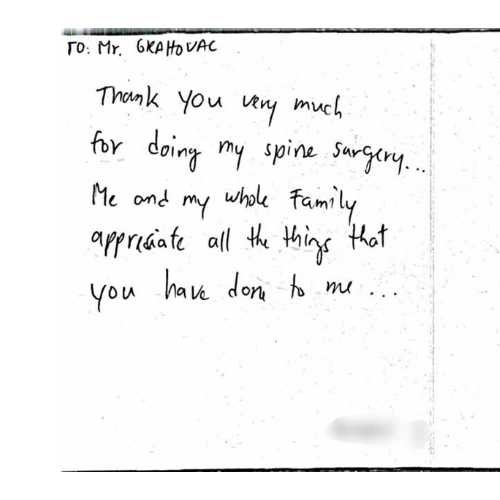 TO: Mr. GRAHOVAC
Thank you very much
for doing my spine surgery...
Me and my whole Family
appresiate all the things that
you have done to me ...